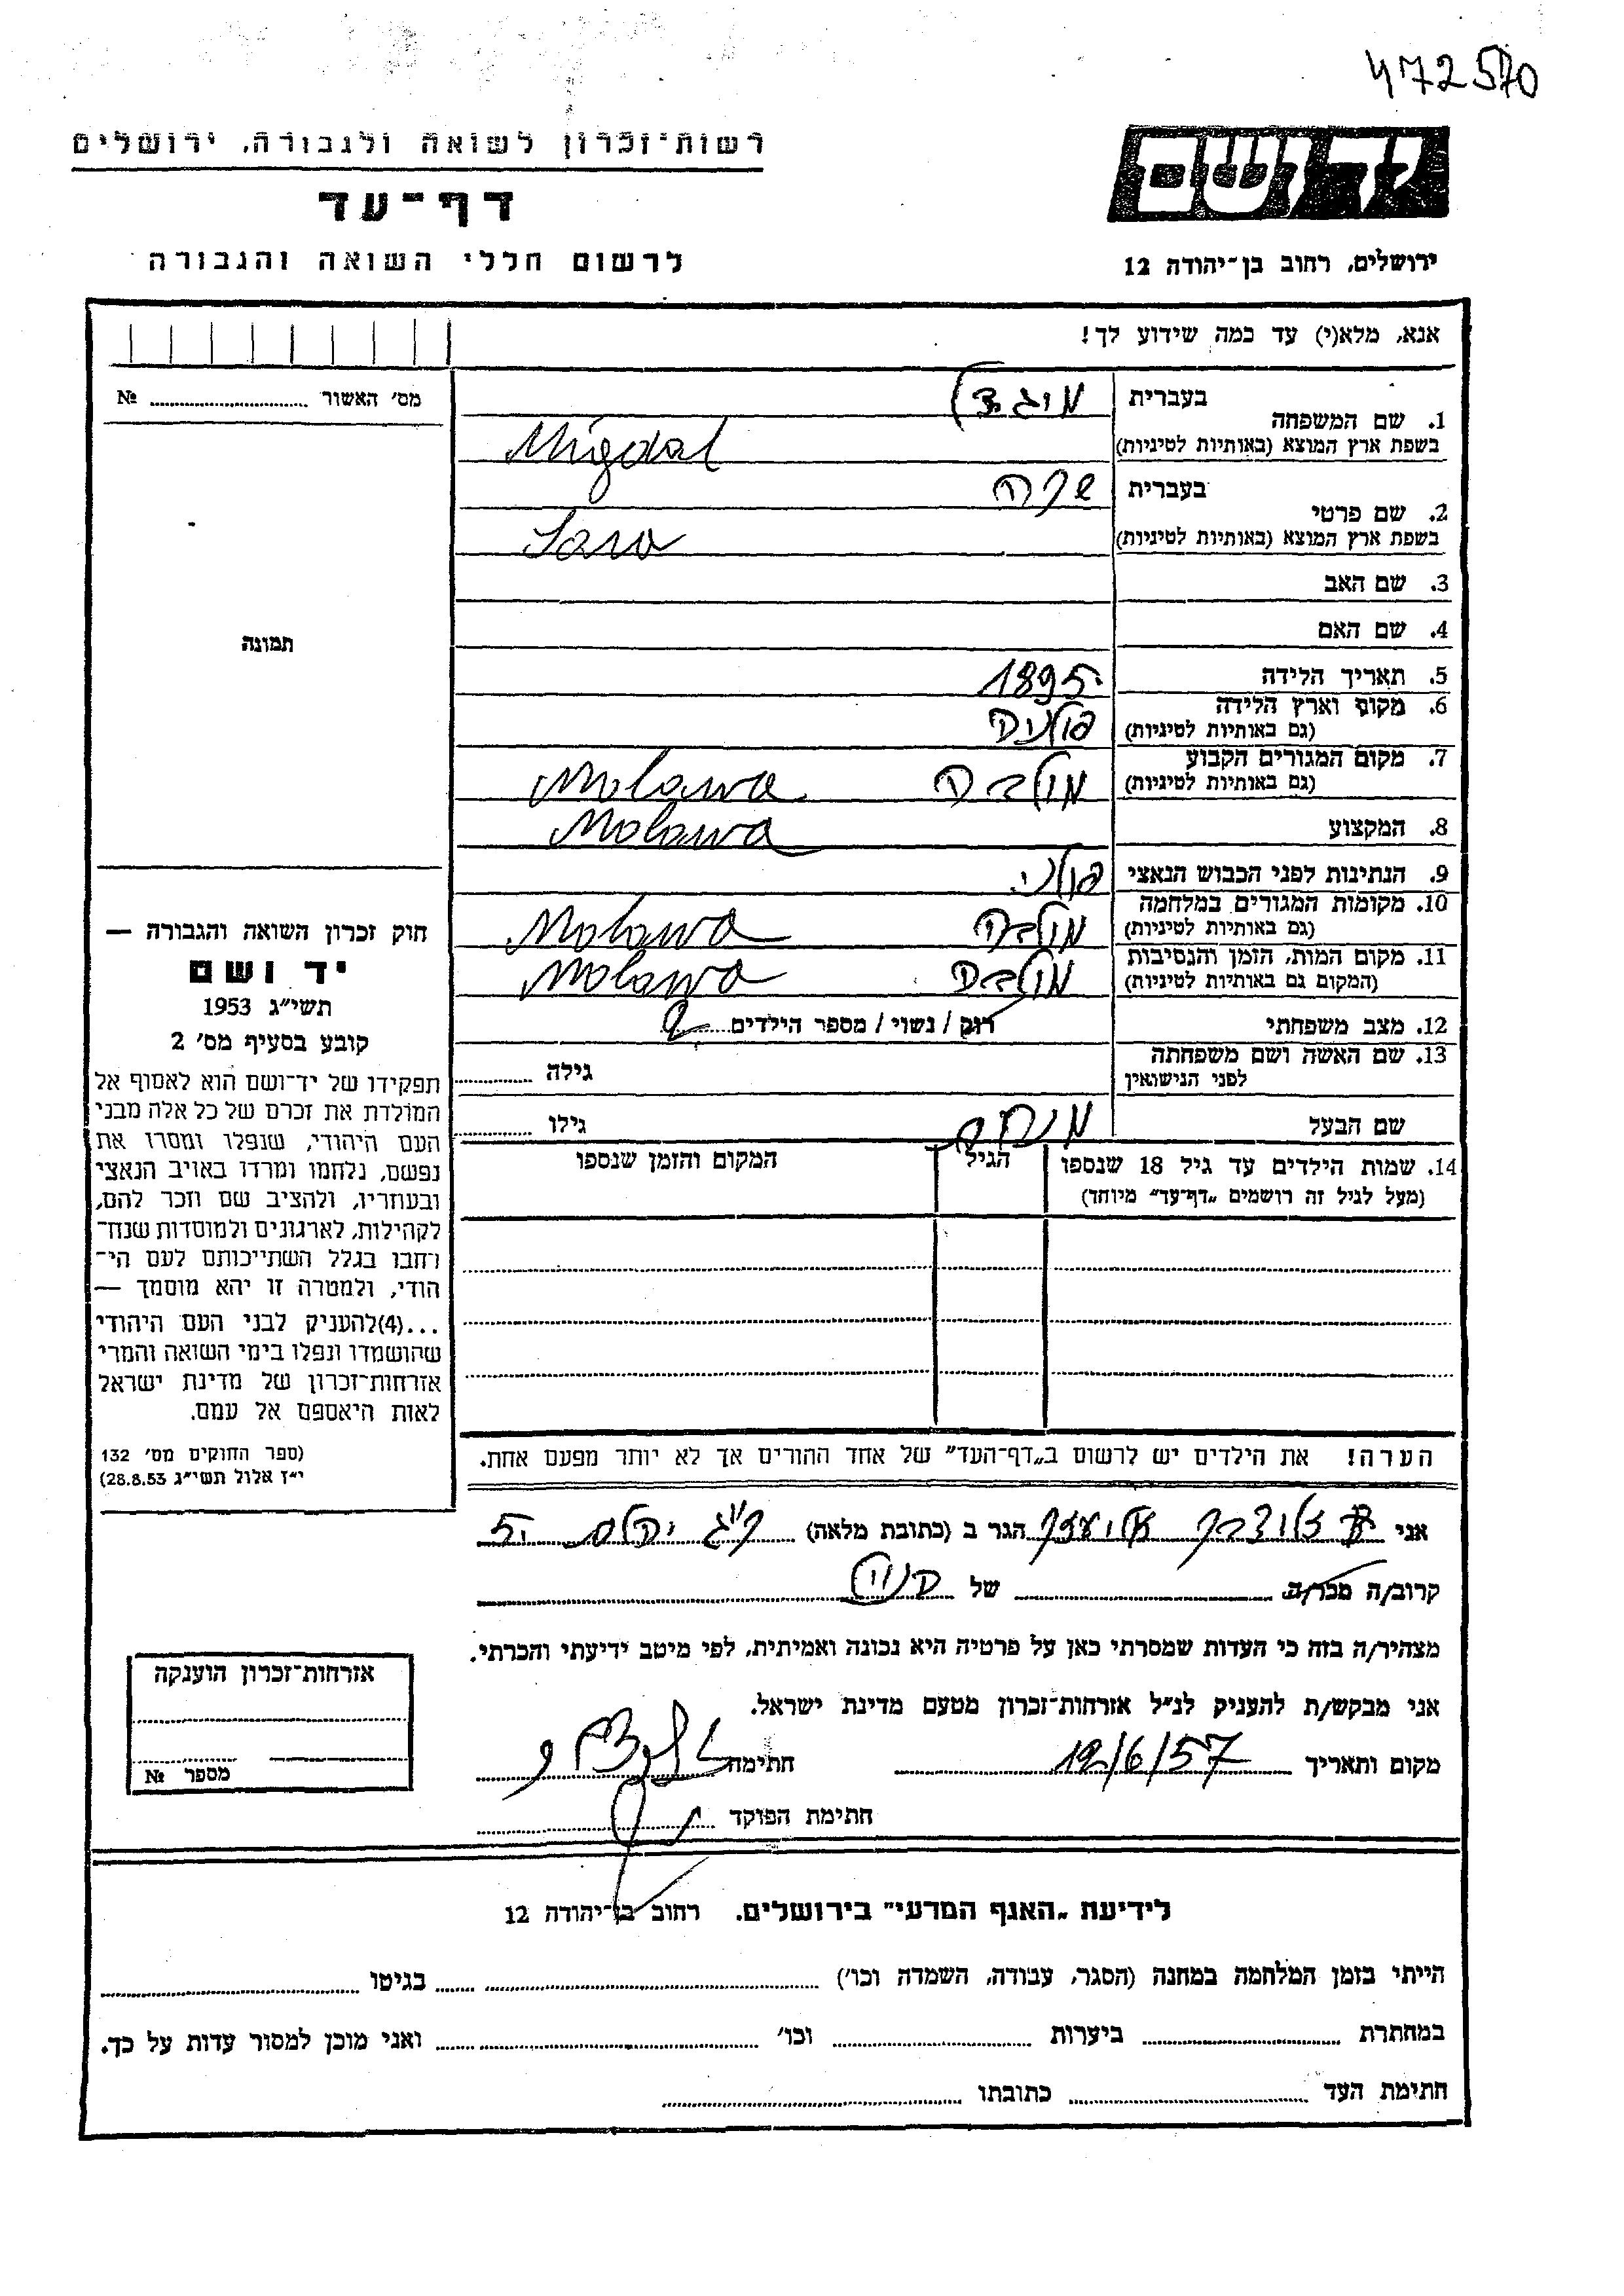 472570
רשות־זכרון לשואה ולגבורה, ירושלים
דף־עד
לרשום חללי השואה והגבורה
יד ושם
ירושלים, רחוב בן־יהודה 12
אנא, מלא(י) עד כמה שידוע לך!
מס' האשור № 
1. שם המשפחה
בעברית
בשפת ארץ המוצא (באותיות לטיניות) Migdal
2. שם פרטי
בעברית שרה
בשפת ארץ המוצא (באותיות לטיניות) Sara
3. שם האב
4. שם האם
5. תאריך הלידה 1895
6. מקום וארץ הלידה פולניה
(גם באותיות לטיניות)
7. מקום המגורים הקבוע Molawa
(גם באותיות לטיניות)
8. המקצוע Molawa
9. הנתינות לפני הכבוש הנאצי פולני
10. מקומות המגורים במלחמה Molawa
(גם באותיות לטיניות)
11. מקום המות, הזמן והנסיבות Molawa
(המקום גם באותיות לטיניות)
12. מצב משפחתי רווק / נשוי / מספר הילדים 2
13. שם האשה ושם משפחתה גילה
לפני הנישואין
שם הבעל גילו
14. שמות הילדים עד גיל 18 שנספו הגיל המקום והזמן שנספו
(מעל לגיל זה רושמים „דף־עד" מיוחד)
הערה! את הילדים יש לרשום ב„דף־העד" של אחד ההורים אך לא יותר מפעם אחת.
תמונה
חוק זכרון השואה והגבורה —
יד ושם
תשי"ג 1953
קובע בסעיף מס' 2
תפקידו של יד־ושם הוא לאסוף אל
המולדת את זכרם של כל אלה מבני
העם היהודי, שנפלו ומסרו את
נפשם, נלחמו ומרדו באויב הנאצי
ובעוזריו, ולהציב שם וזכר להם,
לקהילות, לארגונים ולמוסדות שנח־
רחבו בגלל השתייכותם לעם הי־
הודי, ולמטרה זו יהא מוסמך —
...(4) להעניק לבני העם היהודי
שהושמדו ונפלו בימי השואה והמרי
אזרחות־זכרון של מדינת ישראל
לאות היאספם אל עמם.
(ספר החוקים מס' 132
י"ז אלול תשי"ג 28.8.53)
אני הגר ב (כתובת מלאה)
קרוב/ה מכר/ה של
מצהיר/ה בזה כי העדות שמסרתי כאן על פרטיה היא נכונה ואמיתית, לפי מיטב ידיעתי והכרתי.
אני מבקש/ת להעניק לנ"ל אזרחות־זכרון מטעם מדינת ישראל.
מקום ותאריך 12/6/57 חתימה
חתימת הפוקד
אזרחות־זכרון הוענקה
מספר №
לידיעת „האגף המדעי" בירושלים. רחוב בן־יהודה 12
הייתי בזמן המלחמה במחנה (הסגר, עבודה, השמדה וכו') בגיטו
במחתרת ביערות וכו' ואני מוכן למסור עדות על כך.
חתימת העד כתובתו